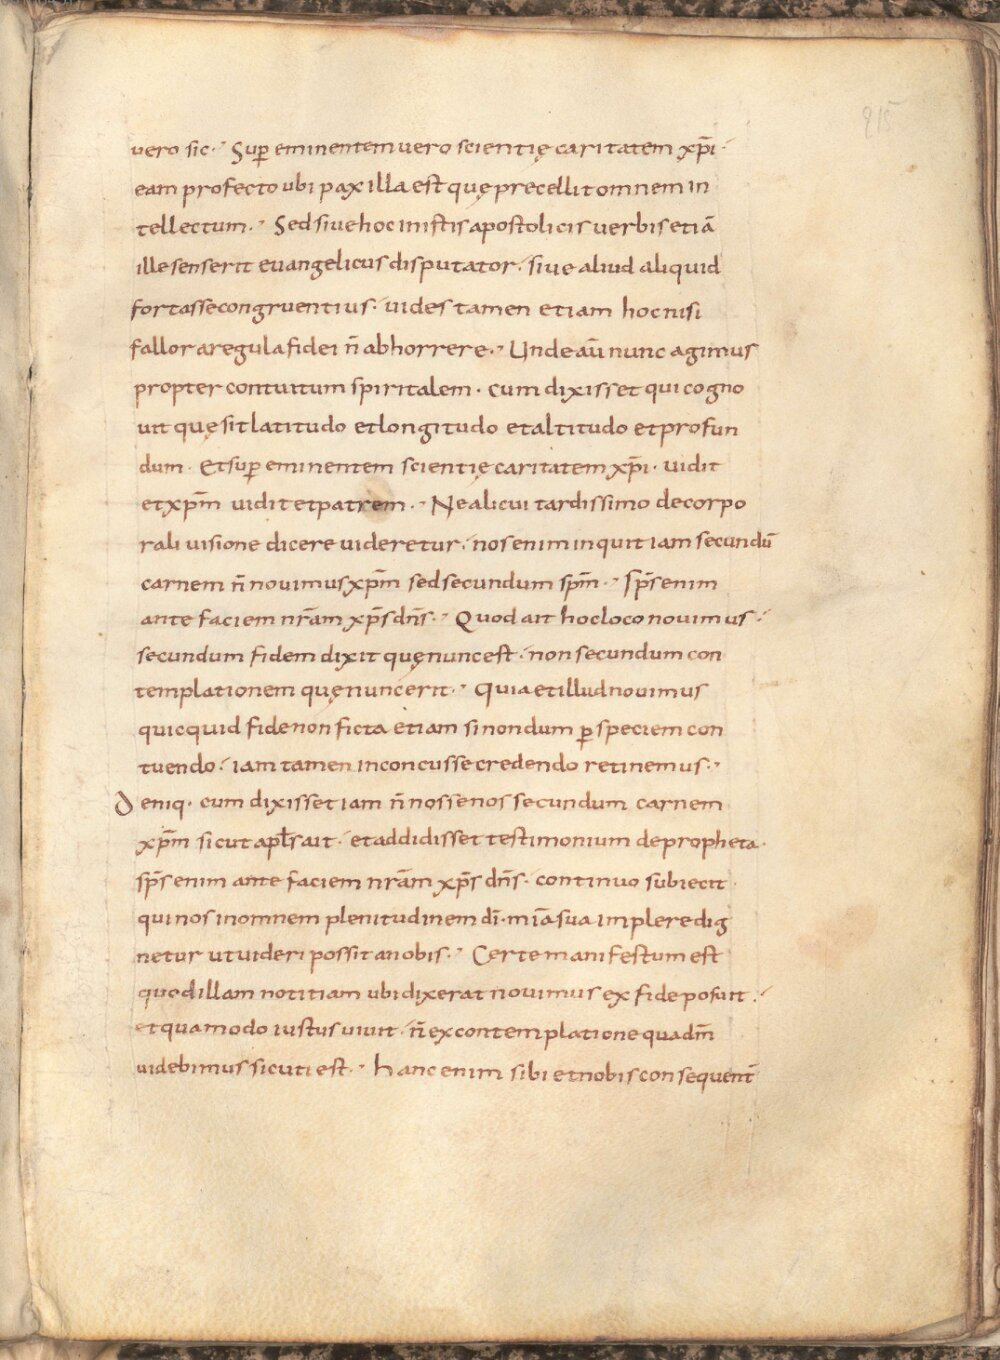 215
vero sic·' Sup̄ eminentem vero scientię caritatem xp̄i·
eam profecto ubi pax illa est quę precellit omnem in
tellectum·' Sed siue hoc in istis apostolicis verbis etiā
ille senserit euangelicus disputator· siue aliud aliquid
fortasse congruentius· uides tamen etiam hoc nisi
fallor a regula fidei n̄ abhorrere·' Unde aū nunc agimus
propter contuitum spiritalem· cum dixisset qui cogno
uit quę sit latitudo et longitudo et altitudo et profun
dum· Et sup̄ eminentem scientię caritatem xp̄i· uidit
et xp̄m uidit et patrem·' Ne alicui tardissimo de corpo
rali uisione dicere uideretur· nos enim inquit iam secundū
carnem n̄ nouimus xp̄m sed secundum sp̄m·' sp̄s enim
ante faciem nr̄am xp̄s dn̄s·' Quod ait hoc loco nouimus·'
secundum fidem dixit quę nunc est· non secundum con
templationem quę nunc erit·' Quia et illud nouimus
quicquid fide non ficta etiam si nondum ꝑ speciem con
tuendo· iam tamen inconcusse credendo retinemus·'
Deniq· cum dixisset iam n̄ nosse nos secundum carnem
xp̄m sicut apl̄s ait· et addidisset testimonium de propheta·
sp̄s enim ante faciem nr̄am xp̄s dn̄s· continuo subiecit
qui nos in omnem plenitudinem dī· mīa sua implere dig
netur ut uideri possit a nobis·' Certe manifestum est
quod illam notitiam ubi dixerat nouimus ex fide posuit·'
et qua modo iustus uiuit· n̄ ex contemplatione qua dm̄
uidebimus sicuti est·' hanc enim sibi et nobis consequent̄